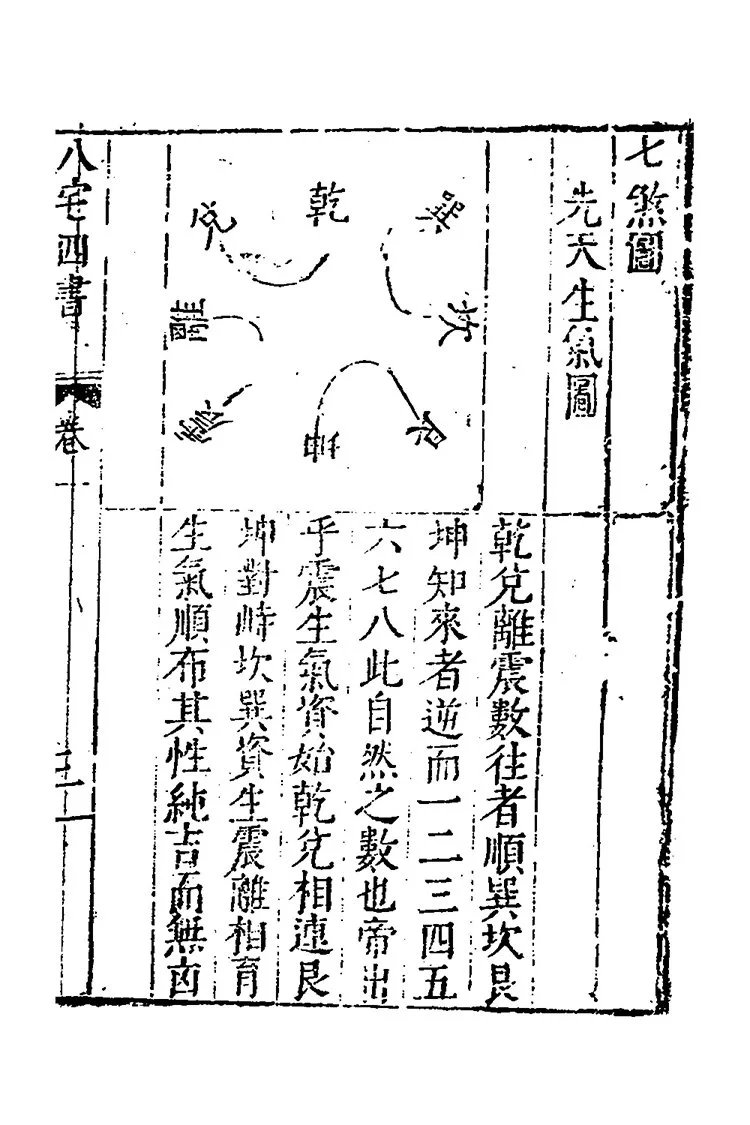 七煞圖
先天生氣圖
乾
兌
巽
離
坎
震
艮
坤
乾兌離震數往者順巽坎艮
坤知來者逆而一二三四五
六七八此自然之數也帝出
乎震生氣資始乾兌相連艮
坤對峙坎巽資生震離相育
生氣順布其性純吉而無凶
八宅四書
卷一